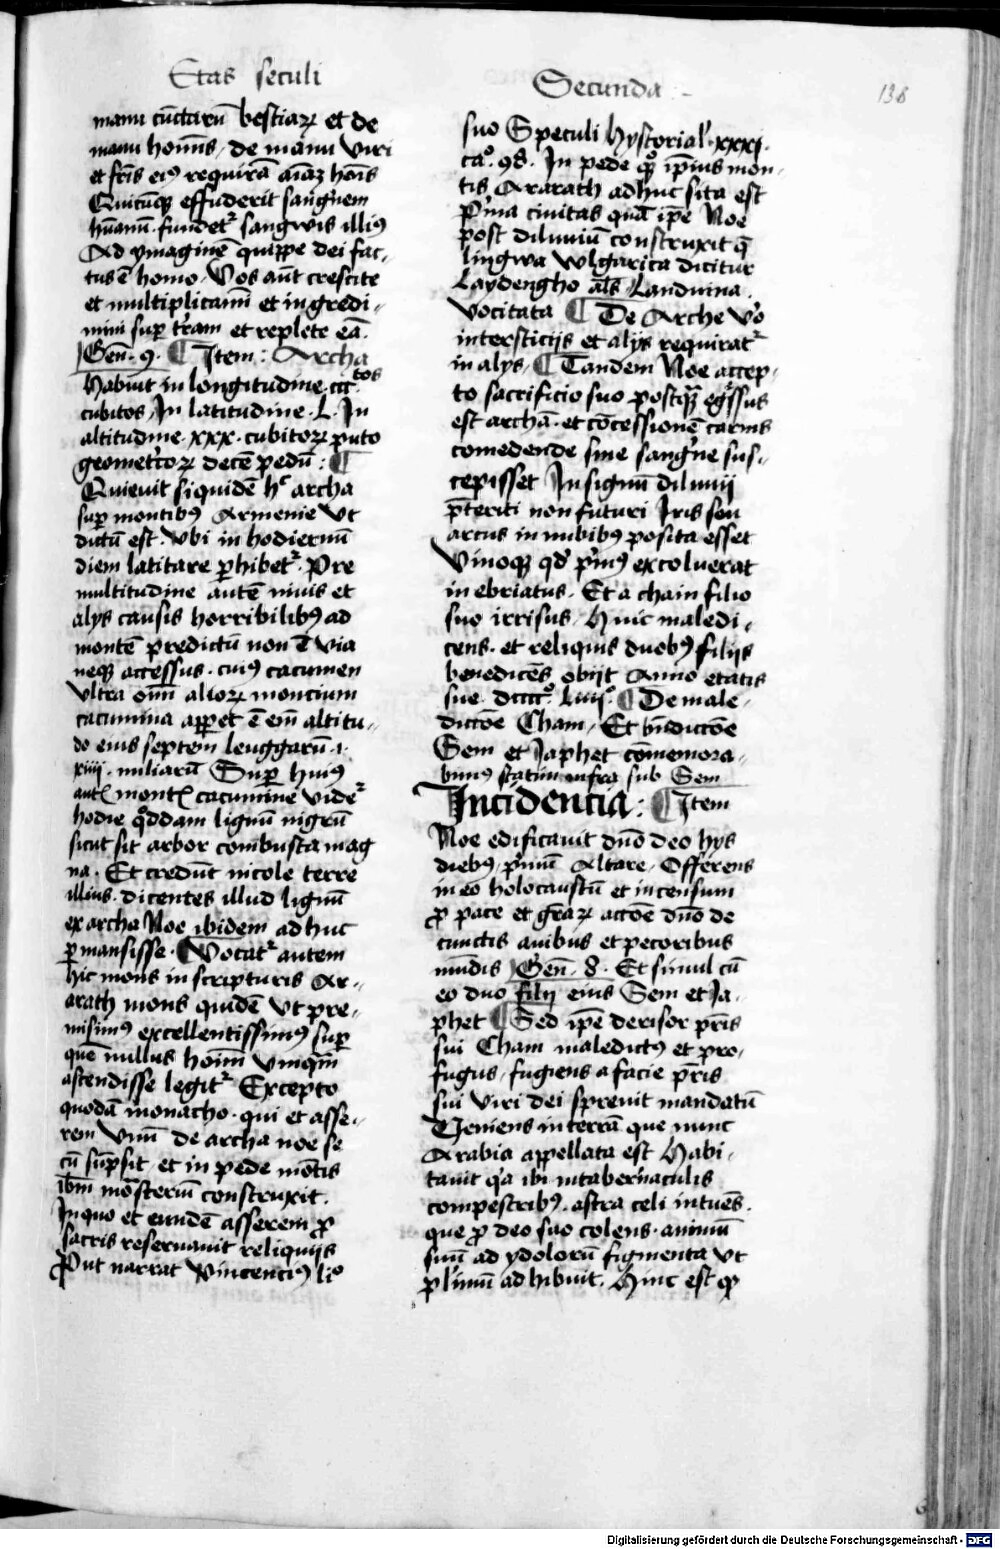 Etas seculi
Secunda
138
manu cūctarū bestiaꝝ et de
manu hoīnis, de manu viri
et frīs eiꝰ requirā aīaꝫ hoīs
Quicūqꝫ effuderit sangwem
hūanū. fundetᷣ sangwis illiꝰ
Ad ymaginē quippe dei fac-
tus ē homo. Vos aūt crescite
et multiplicamī et ingredi-
mini suꝑ trām et replete eā.
Geñ. 9. ¶ Item: Archa
habuit in longitudine .ccc^tos
cubitos, In latitudine .L. In
altitudine .xxx. cubitoꝝ puto
geometrᷣcoꝝ decē pedū: ¶
Quieuit siquidē hᷣ archa
suꝑ montibꝰ Armenie vt
dictū est. Vbi in hodiernū
diem latitare ꝑhibetᷣ. Pre
multitudine autē niuis et
alys causis horribilibꝰ ad
montē predictū non ē via
neqꝫ accessus. cuiꝰ cacumen
vltra oīm alioꝝ moncium
cacumina apparet ē eīm altitu-
do eius septem leuggarū .i.
xiiij. miliarū Suꝑ huiꝰ
autē montꝭ cacumine videtᷣ
hodie qᵒddam lignū nigrū
sicut sit arbor combusta mag
na. Et credūt incole terre
illius. dicentes illud lignū
ex archa Noe ibidem adhuc
ꝑmansisse. ¶ Vocatᷣ autem
hic mons in scripturis Ar-
arath mons quidē vt pre-
misimꝰ excellentissimꝰ suꝑ
quē nullus hoīm vnqᷓm
ascendisse legitᷣ Excepto
quodā monacho. qui et asse-
rem vnū de archa noe se
cū sūpsit, et in pede mōtis
ibm̄ mōsteriū construxit.
In quo et eundē asserem ꝓ
sacris reseruauit reliquijs
Put narrat Vincenciꝰ liᵒ
suo Speculi hystorialꝭ .xxxj.
caᵒ. 98. In pede qᷓꝫ ipīus mon-
tis Ararath adhuc sita est
pᷣma ciuitas quā ipē Noe
post diluuiū construxit q̄
lingwa wlgarica dicitur
Laydengho al̄s Landuina
vocitata ¶ De Arche vᵒ
intersticijs et alys requiratᷣ
in alys. ¶ Tandem Noe accep-
to sacrificio suo postqᷓꝫ egᷣssus
est archā. et cōcessionē carnis
comedende sine sangwīe sus-
cepisset In signū diluuij
p̄teriti non futuri Iris seu
arcus in nubibꝰ posita esset
Vinoqꝫ qd' pᷣmꝰ excoluerat
inebriatus. Et a cham filio
suo irrisus. Huic maledi-
cens. et reliquis duobꝰ filijs
benedicēs obijt Anno etatis
sue. dcccc^o. Liiij^o. ¶ De male-
dictōe Cham. Et bn̄dictōe
Sem et Japhet cōmemora-
bimꝰ statim infra sub Sem
Incidencia: ¶ Item
Noe edificauit dn̄o deo hys
diebꝰ, pᷣmū Altare. Offerens
in eo holocaustū et incensum
ꝓ pace et grāꝝ actōe dn̄o de
cunctis auibus et pecoribus
mūdis Geñ. 8. Et simul cū
eo duo filij eius Sem et Ja-
phet ¶ Sed ipē derisor pr̄is
sui Cham maledictꝰ et pro-
fugus, fugiens a facie pr̄is
sui viri dei spreuit mandatū
Veniens in terrā que nunc
Arabia appellata est Habi-
tauit qᷓ ibi in tabernaculis
campestribꝰ. astra celi intuēs.
que ꝓ deo suo colens. animū
suū ad ydolorū figmenta vt
plᷣimū adhibuit. Hinc est ꝙ
Digitalisierung gefördert durch die Deutsche Forschungsgemeinschaft - DFG